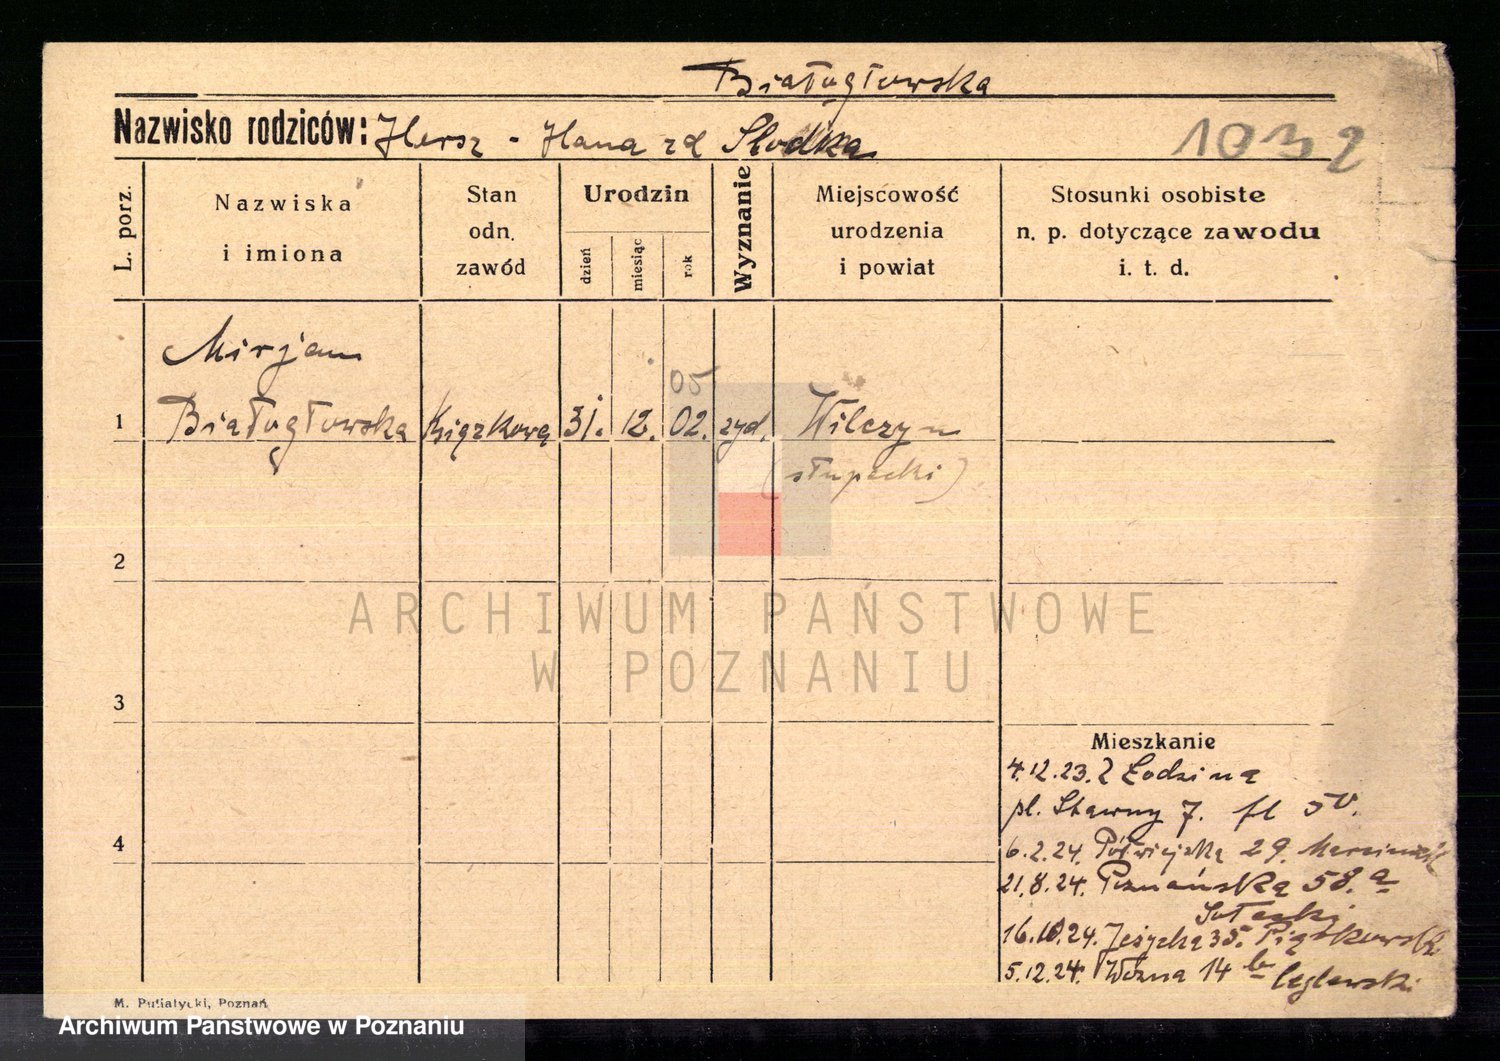 Białogłowska
Nazwisko rodziców: Hersz - Hana zd Słodka
1032
L. porz.
Nazwiska
i imiona
Stan
odn.
zawód
Urodzin
dzień
miesiąc
rok
Wyznanie
Miejscowość
urodzenia
i powiat
Stosunki osobiste
n. p. dotyczące zawodu
i. t. d.
Mirjam
05
1 Białogłowska Książkową 31. 12. 02. żyd. Wilczyn
(słupecki)
2
ARCHIWUM PAŃSTWOWE
W POZNANIU
3
Mieszkanie
4.12.23. z Łodzi na
pl. Stawny 7. fl
4
6.2.24. Półwiejska 29.
21.8.24. Poznańska 58. a
16.10.24. Jeżycka 35. Piątkowski
5.12.24. Woźna 14 b Ceglewski
M. Putiatycki, Poznań
Archiwum Państwowe w Poznaniu